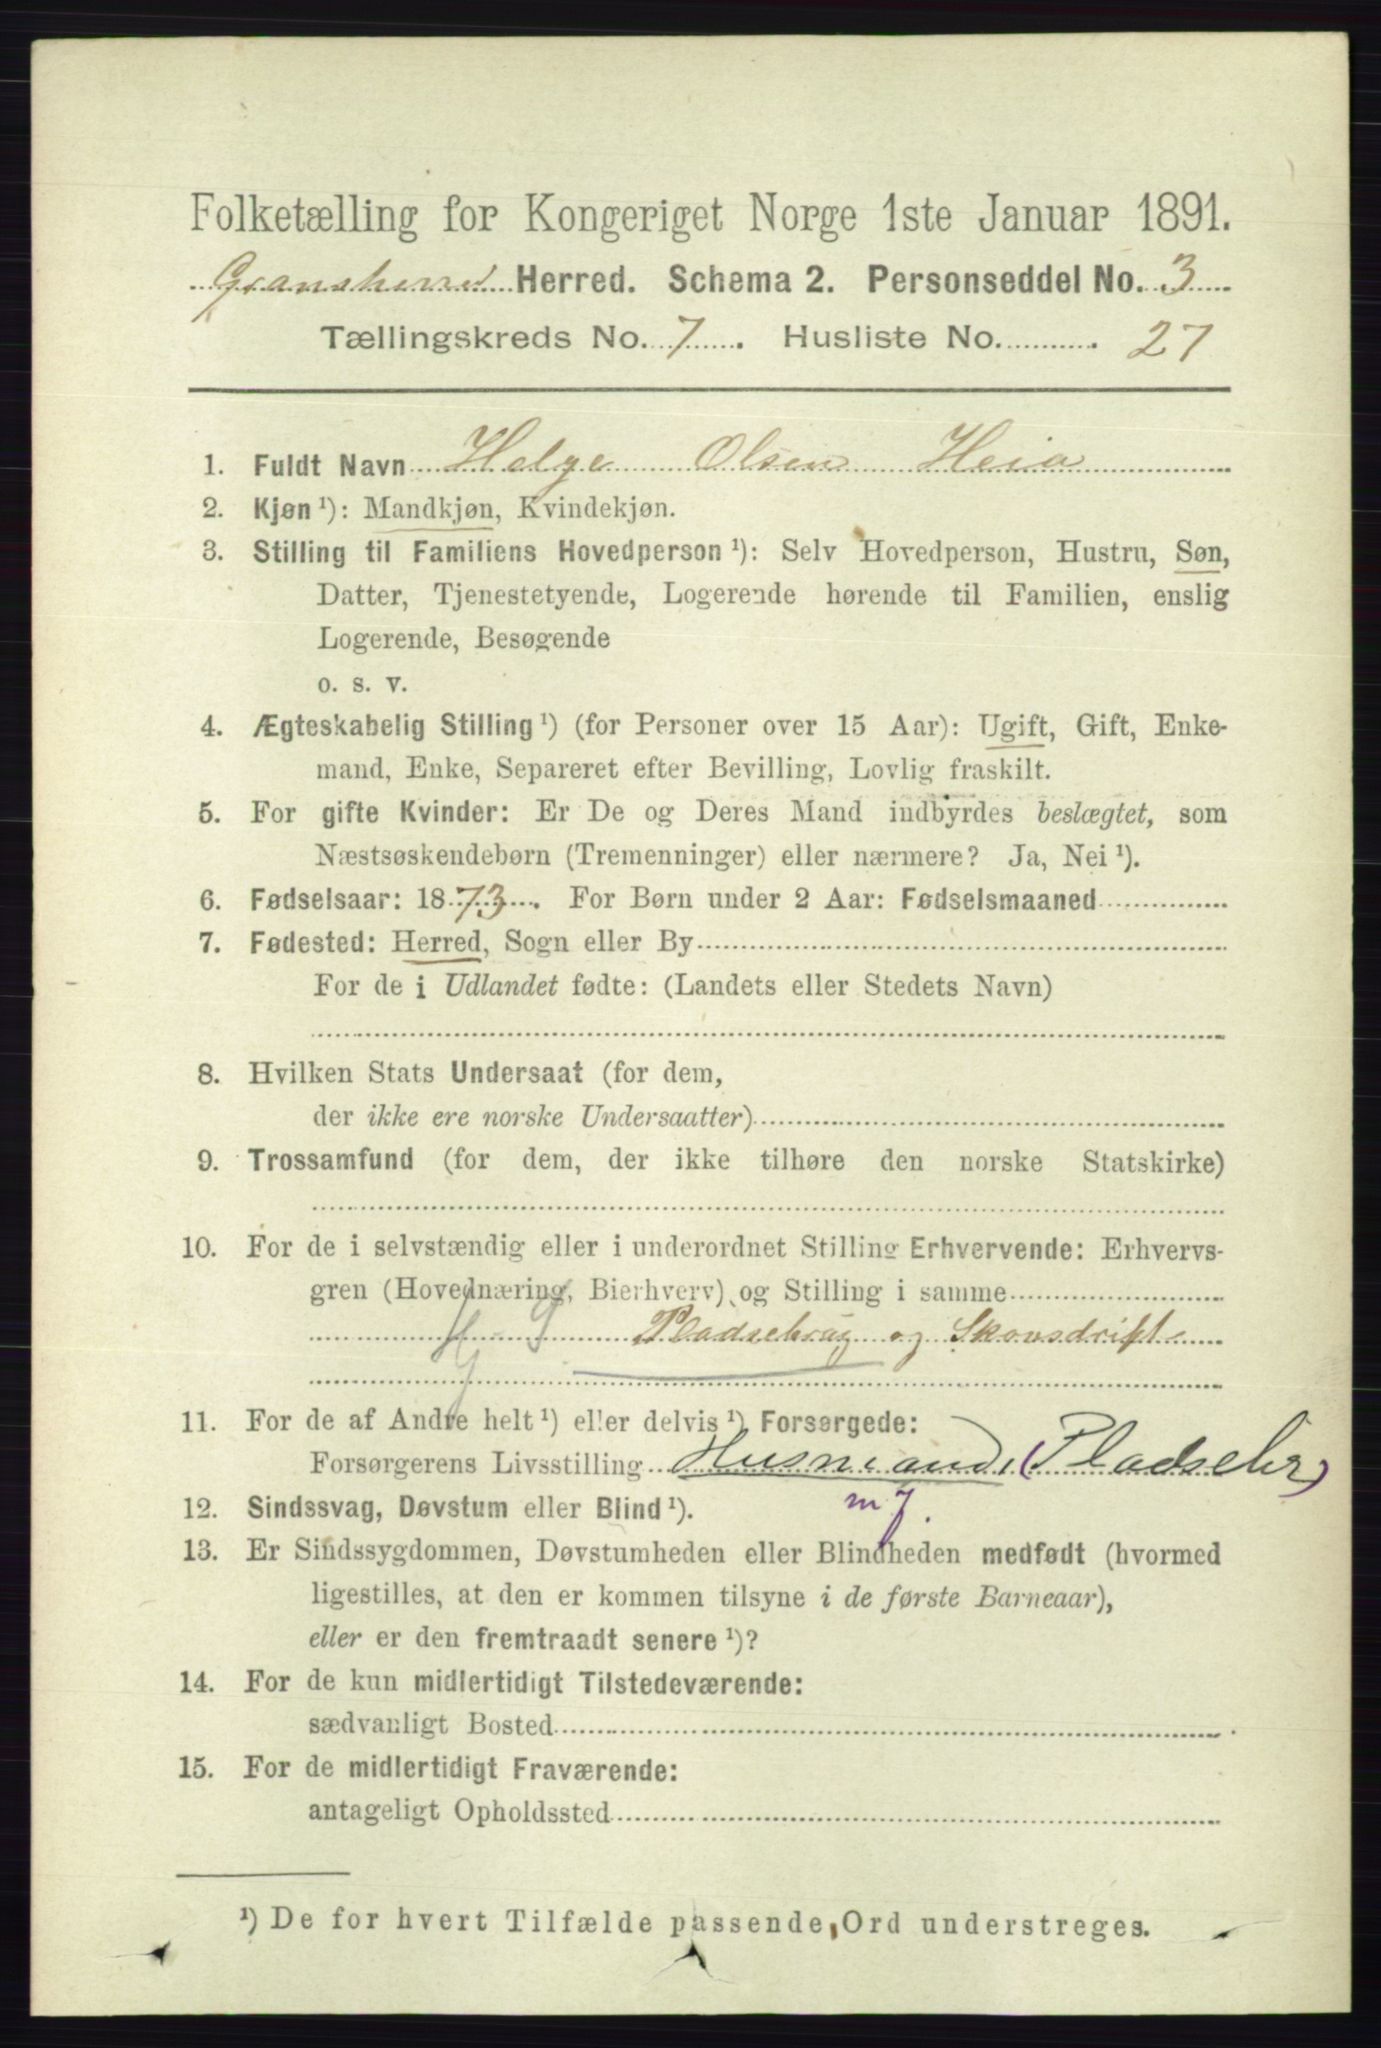 Folketælling for Kongeriget Norge 1ste Januar 1891.
Gransherred Herred. Schema 2. Personseddel No. 3
Tællingskreds No. 7. Husliste No. 27
1. Fuldt Navn Helge Olsen Heia
2. Kjøn ¹): Mandkjøn, Kvindekjøn.
3. Stilling til Familiens Hovedperson ¹): Selv Hovedperson, Hustru, Søn,
Datter, Tjenestetyende, Logerende hørende til Familien, enslig
Logerende, Besøgende
o. s. v.
4. Ægteskabelig Stilling ¹) (for Personer over 15 Aar): Ugift, Gift, Enke-
mand, Enke, Separeret efter Bevilling, Lovlig fraskilt.
5. For gifte Kvinder: Er De og Deres Mand indbyrdes beslægtet, som
Næstsøskendebørn (Tremenninger) eller nærmere? Ja, Nei ¹).
6. Fødselsaar: 1873. For Børn under 2 Aar: Fødselsmaaned
7. Fødested: Herred, Sogn eller By
For de i Udlandet fødte: (Landets eller Stedets Navn)
8. Hvilken Stats Undersaat (for dem,
der ikke ere norske Undersaatter)
9. Trossamfund (for dem, der ikke tilhøre den norske Statskirke)
10. For de i selvstændig eller i underordnet Stilling Erhvervende: Erhvervs-
gren (Hovednæring, Bierhverv) og Stilling i samme
Pladsebrug og Skovsdrift
11. For de af Andre helt ¹) eller delvis ¹) Forsørgede:
Forsørgerens Livsstilling Husmand (Pladsebr)
12. Sindssvag, Døvstum eller Blind ¹). m J.
13. Er Sindssygdommen, Døvstumheden eller Blindheden medfødt (hvormed
ligestilles, at den er kommen tilsyne i de første Barneaar),
eller er den fremtraadt senere ¹)?
14. For de kun midlertidigt Tilstedeværende:
sædvanligt Bosted
15. For de midlertidigt Fraværende:
antageligt Opholdssted
¹) De for hvert Tilfælde passende Ord understreges.